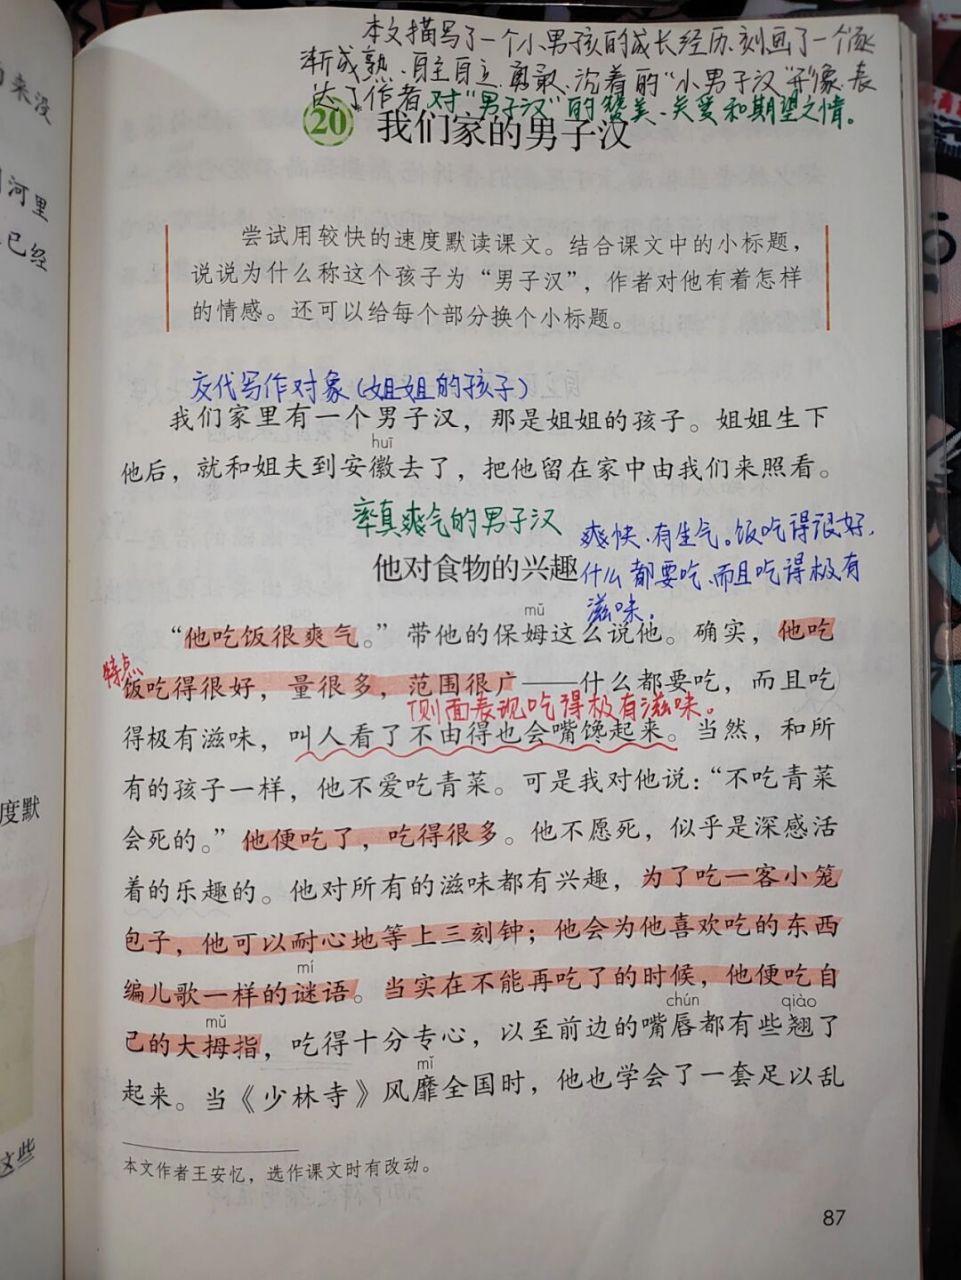 本文描写了一个小男孩的成长经历,刻画了一个逐
渐成熟、自主自立、勇敢、沉着的“小男子汉”形象,表
达了作者对“男子汉”的赞美、关爱和期望之情。
20 我们家的男子汉
尝试用较快的速度默读课文。结合课文中的小标题，
说说为什么称这个孩子为“男子汉”，作者对他有着怎样
的情感。还可以给每个部分换个小标题。
交代写作对象(姐姐的孩子)
我们家里有一个男子汉，那是姐姐的孩子。姐姐生下
huī
他后，就和姐夫到安徽去了，把他留在家中由我们来照看。
率真爽气的男子汉
爽快、有生气。饭吃得很好,
他对食物的兴趣
什么都要吃,而且吃得极有
滋味.
mǔ
“他吃饭很爽气。”带他的保姆这么说他。确实，他吃
特点
饭吃得很好，量很多，范围很广——什么都要吃，而且吃
侧面表现吃得极有滋味。
得极有滋味，叫人看了不由得也会嘴馋起来。当然，和所
有的孩子一样，他不爱吃青菜。可是我对他说：“不吃青菜
会死的。”他便吃了，吃得很多。他不愿死，似乎是深感活
着的乐趣的。他对所有的滋味都有兴趣，为了吃一客小笼
包子，他可以耐心地等上三刻钟；他会为他喜欢吃的东西
mí
编儿歌一样的谜语。当实在不能再吃了的时候，他便吃自
mǔ chún qiào
己的大拇指，吃得十分专心，以至前边的嘴唇都有些翘了
mǐ
起来。当《少林寺》风靡全国时，他也学会了一套足以乱
本文作者王安忆，选作课文时有改动。
87
来没
河里
已经
度默
这些